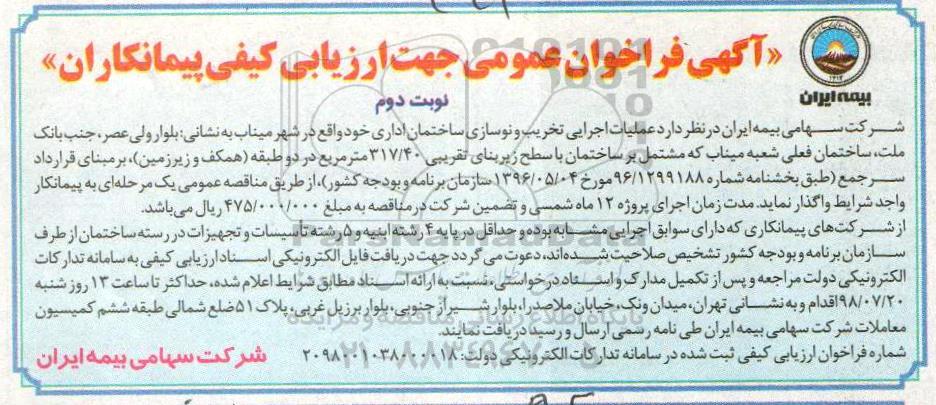 «آگهی فراخوان عمومی جهت ارزیابی کیفی پیمانکاران»
بیمه ایران
نوبت دوم
شرکت سهامی بیمه ایران در نظر دارد عملیات اجرایی تخریب و نوسازی ساختمان اداری خود واقع در شهر میناب به نشانی: بلوار ولی عصر، جنب بانک
ملت، ساختمان فعلی شعبه میناب که مشتمل بر ساختمان با سطح زیربنای تقریبی ۳۱۷/۴۰ مترمربع در دو طبقه (همکف و زیرزمین)، بر مبنای قرارداد
سرجمع (طبق بخشنامه شماره ۹۶/۱۲۹۹۱۸۸ مورخ ۱۳۹۶/۰۵/۰۴ سازمان برنامه و بودجه کشور)، از طریق مناقصه عمومی یک مرحله‌ای به پیمانکار
واجد شرایط واگذار نماید. مدت زمان اجرای پروژه ۱۲ ماه شمسی و تضمین شرکت در مناقصه به مبلغ ۴۷۵/۰۰۰/۰۰۰ ریال می‌باشد.
از شرکت‌های پیمانکاری که دارای سوابق اجرایی مشابه بوده و حداقل در پایه ۴ رشته ابنیه و ۵ رشته تأسیسات و تجهیزات در رسته ساختمان از طرف
سازمان برنامه و بودجه کشور تشخیص صلاحیت شده‌اند، دعوت می گردد جهت دریافت فایل الکترونیکی اسناد ارزیابی کیفی به سامانه تدارکات
الکترونیکی دولت مراجعه و پس از تکمیل مدارک و اسناد درخواستی، نسبت به ارائه اسناد مطابق شرایط اعلام شده، حداکثر تا ساعت ۱۳ روز شنبه
۹۸/۰۷/۲۰ اقدام و به نشانی تهران، میدان ونک، خیابان ملاصدرا، بلوار شیراز جنوبی، بلوار برزیل غربی، پلاک ۵۱ ضلع شمالی طبقه ششم کمیسیون
معاملات شرکت سهامی بیمه ایران طی نامه رسمی ارسال و رسید دریافت نمایند.
شماره فراخوان ارزیابی کیفی ثبت شده در سامانه تدارکات الکترونیکی دولت: ۲۰۹۸۰۰۱۰۳۸۰۰۰۰۱۸
شرکت سهامی بیمه ایران
ParsNamadData
پایگاه اطلاع رسانی مناقصه و مزایده
۰۲۱-۸۸۳۴۹۶۷۰-۵